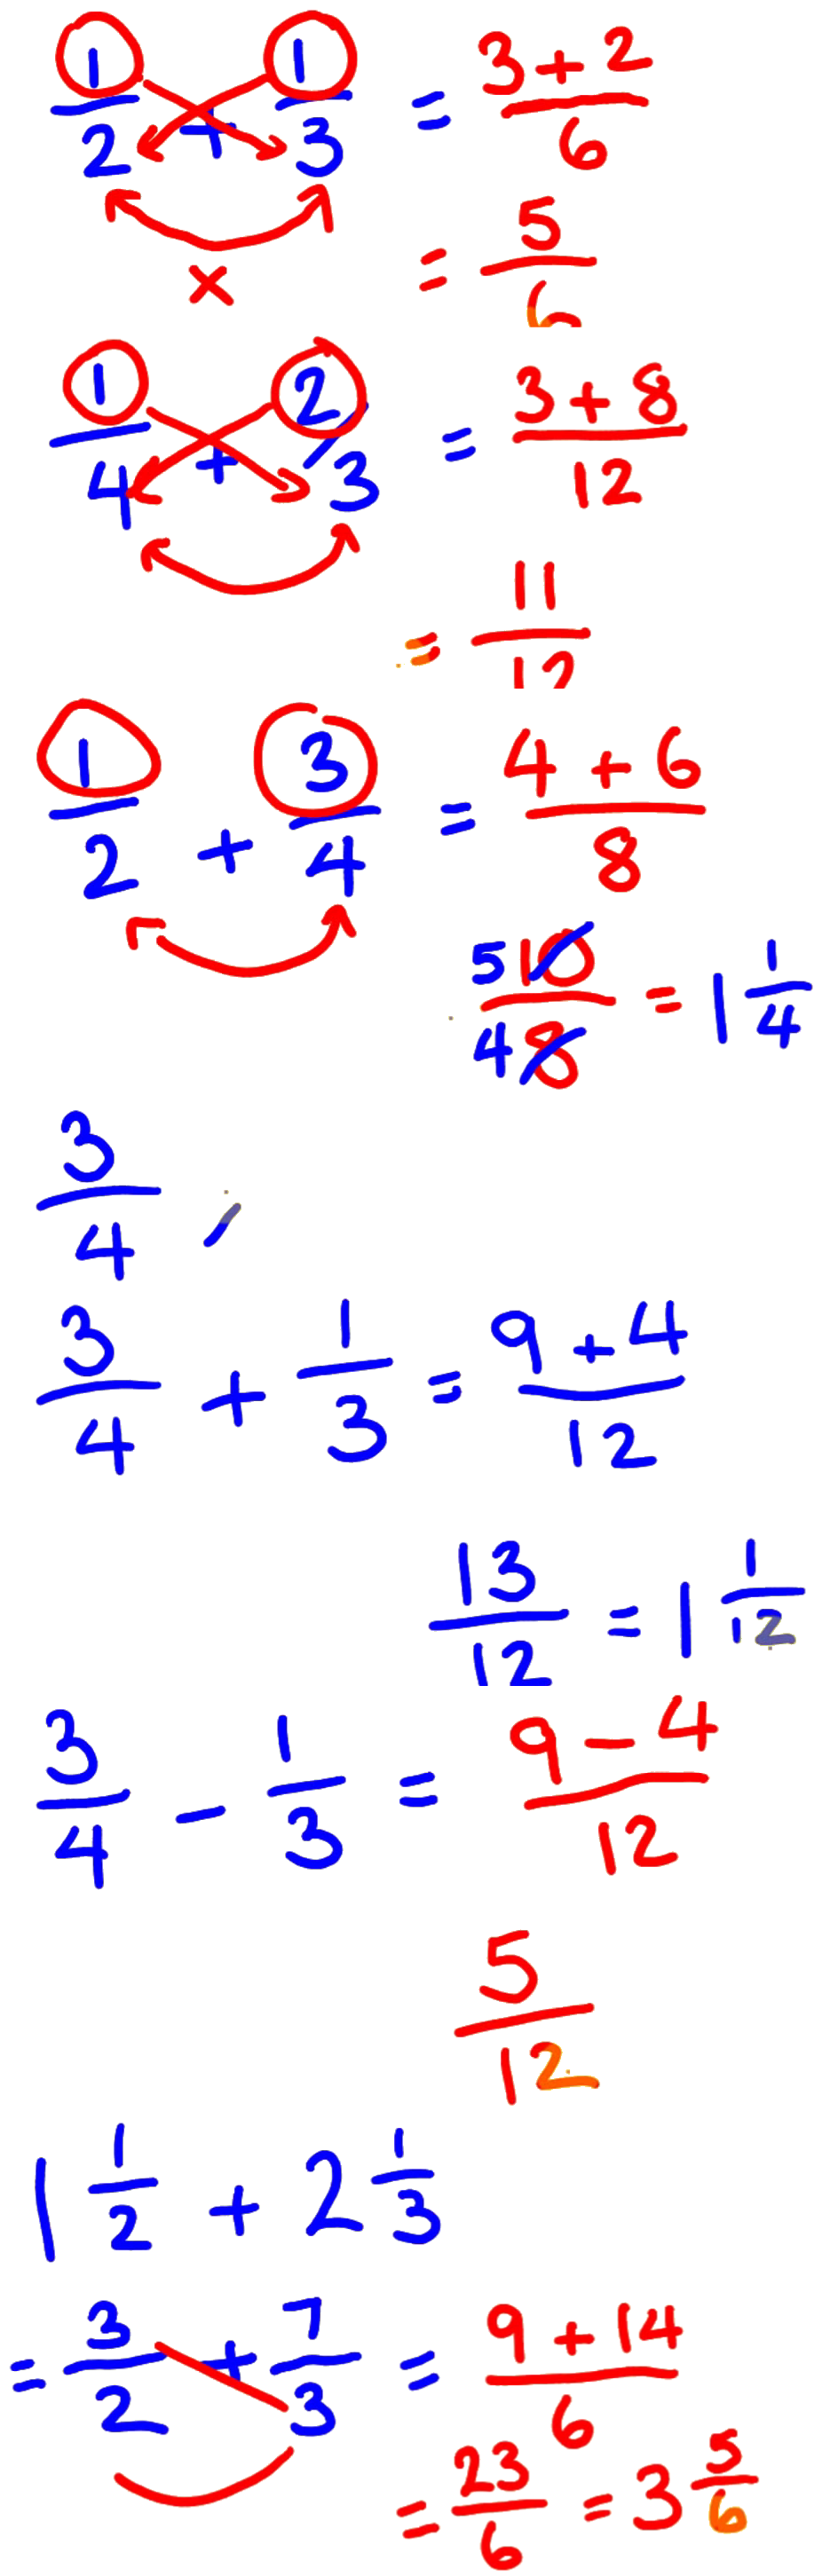 1/2 + 1/3 = (3 + 2)/6
×
= 5/6
1/4 + 2/3 = (3 + 8)/12
= 11/12
1/2 + 3/4 = (4 + 6)/8
5 10 / 4 8 = 1 1/4
3/4
3/4 + 1/3 = (9 + 4)/12
13/12 = 1 1/12
3/4 - 1/3 = (9 - 4)/12
5/12
1 1/2 + 2 1/3
= 3/2 + 7/3 = (9 + 14)/6
= 23/6 = 3 5/6